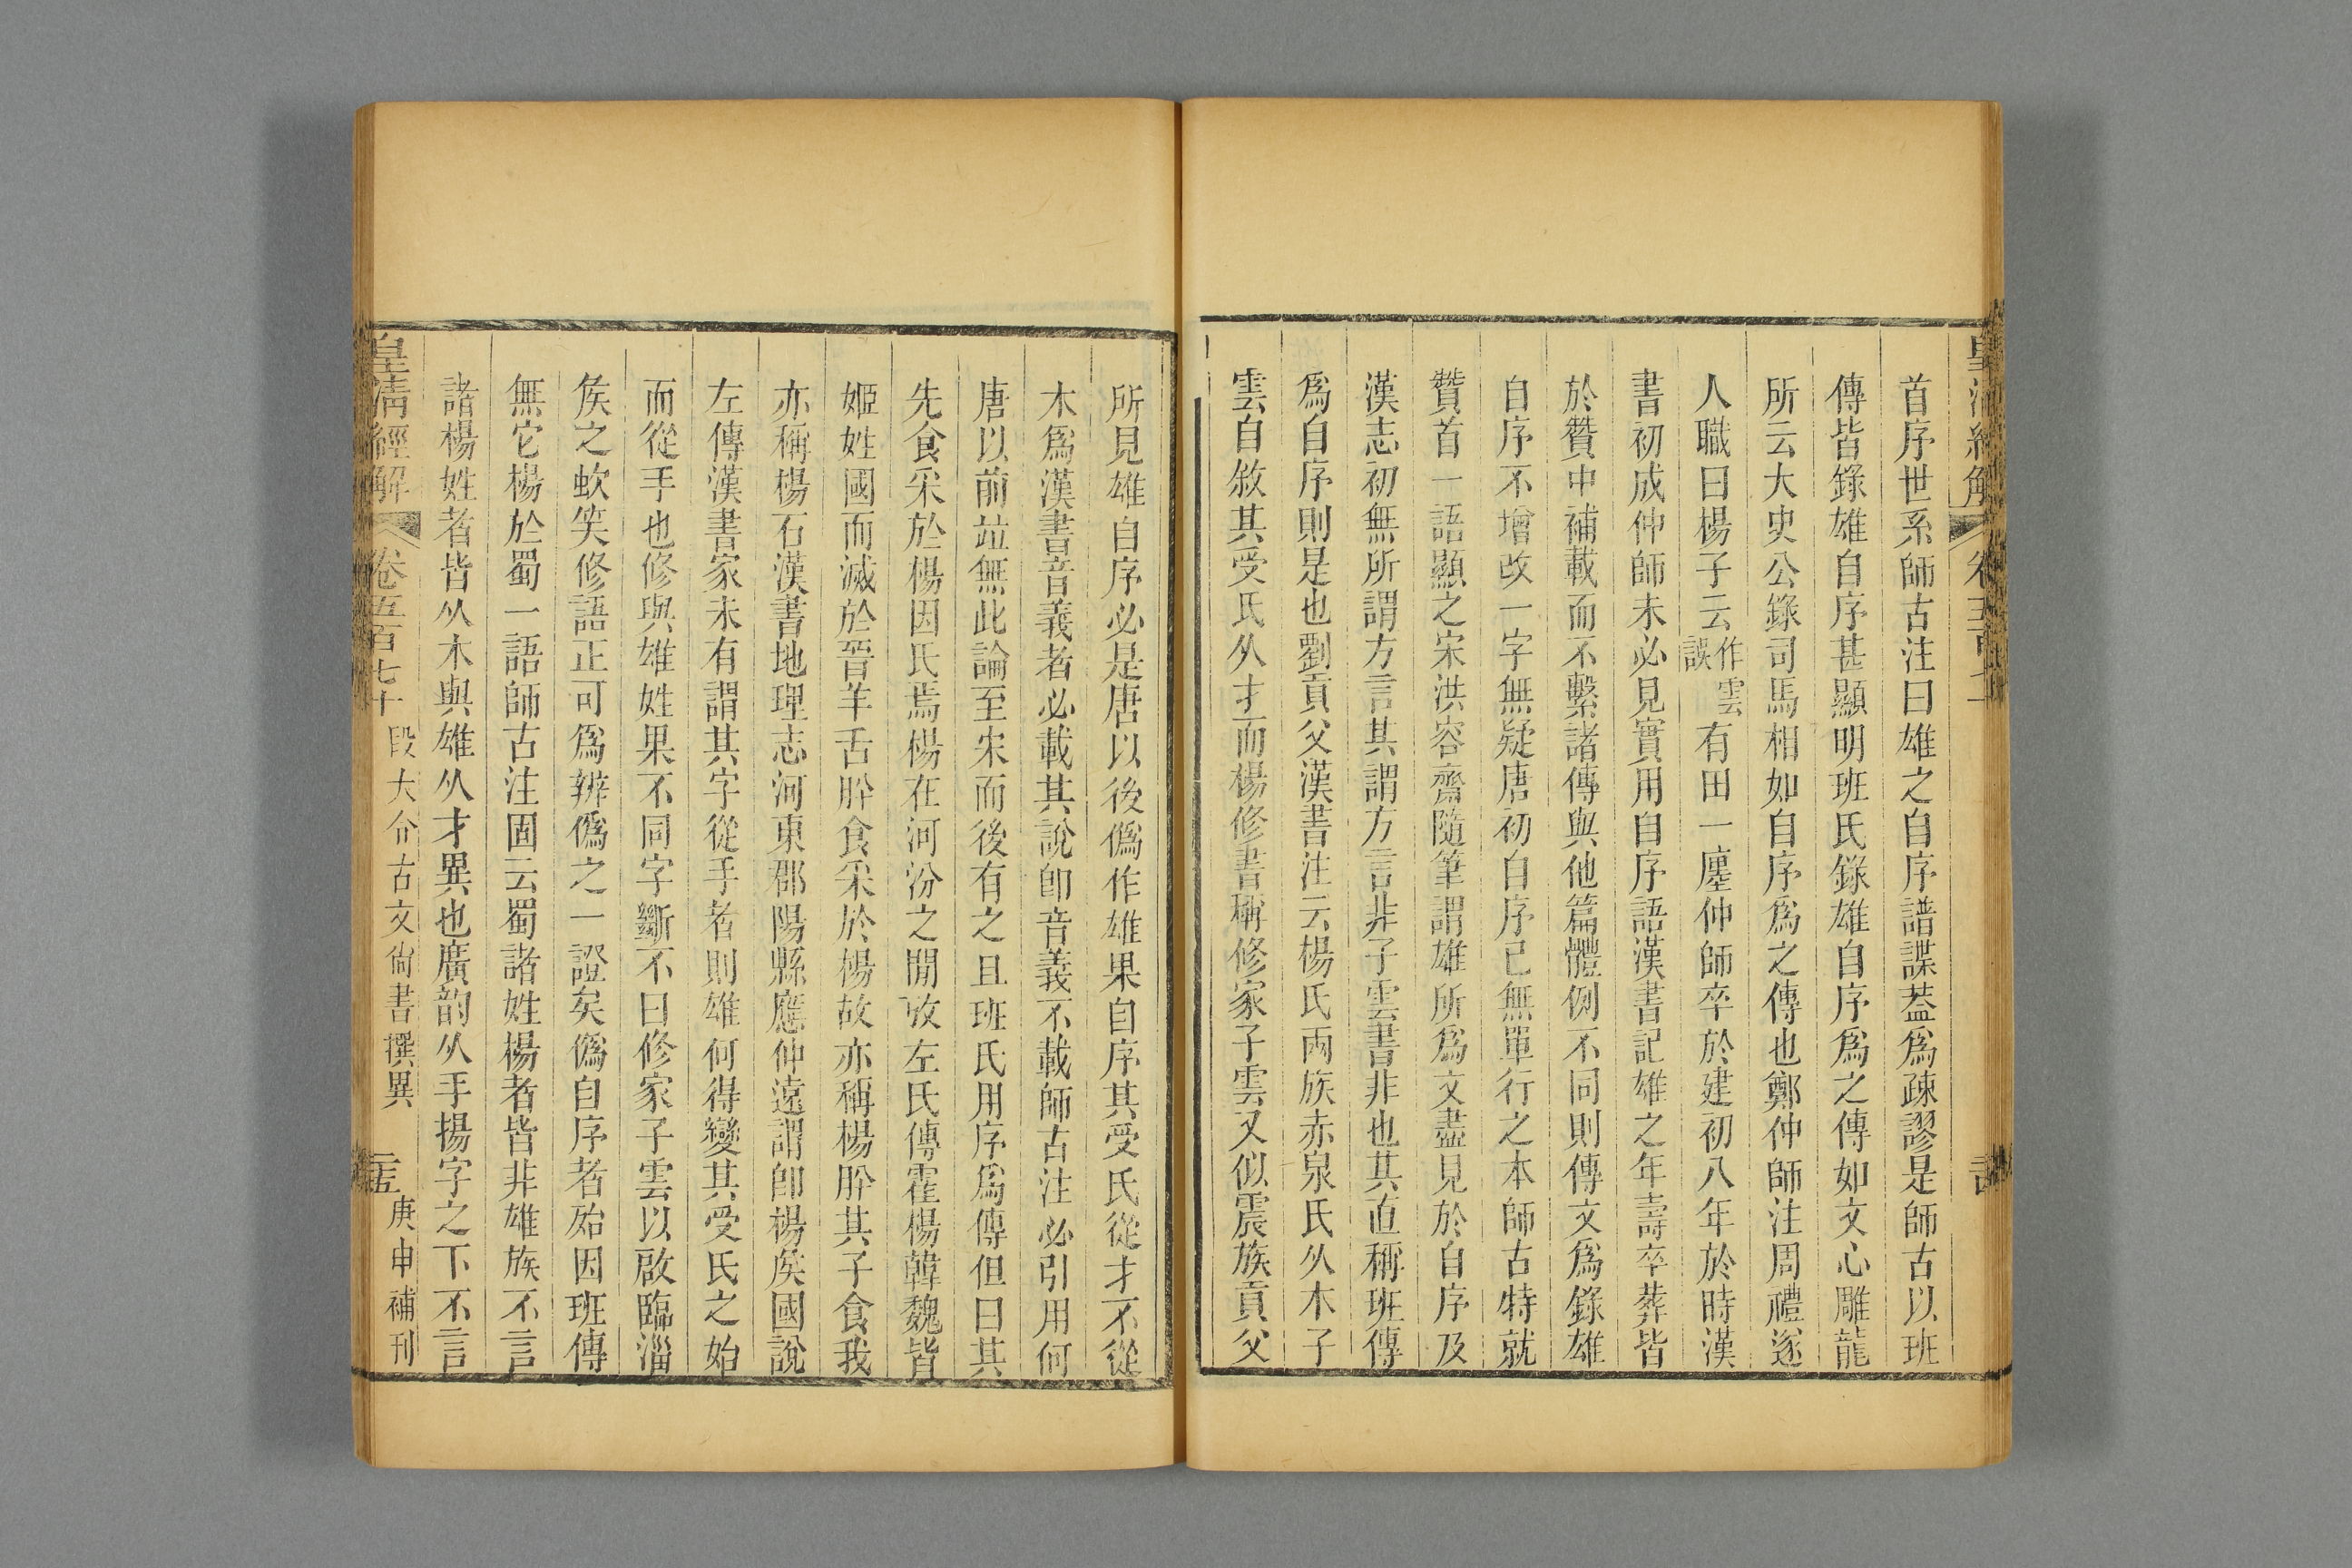 首序世系師古注曰雄之自序譜諜葢爲疎謬是師古以班
傳皆錄雄自序甚顯明班氏錄雄自序爲之傳如文心雕龍
所云大史公錄司馬相如自序爲之傳也鄭仲師注周禮遂
人職曰楊子云作雲誤有田一廛仲師卒於建初八年於時漢
書初成仲師未必見實用自序語漢書記雄之年壽卒葬皆
於贊中補載而不繫諸傳與他篇體例不同則傳文爲錄雄
自序不增改一字無疑唐初自序已無單行之本師古特就
贊首一語顯之宋洪容齋隨筆謂雄所爲文盡見於自序及
漢志初無所謂方言其謂方言非子雲書非也其直稱班傳
爲自序則是也劉貢父漢書注云楊氏兩族赤泉氏从木子
雲自敘其受氏从才而楊修書稱修家子雲又似震族貢父
所見雄自序必是唐以後僞作雄果自序其受氏從才不從
木爲漢書音義者必載其說卽音義不載師古注必引用何
唐以前竝無此論至宋而後有之且班氏用序爲傳但曰其
先食采於楊因氏焉楊在河汾之閒攷左氏傳霍楊韓魏皆
姬姓國而滅於晉羊舌肸食采於楊故亦稱楊肸其子食我
亦稱楊石漢書地理志河東郡陽縣應仲遠謂卽楊矦國說
左傳漢書家未有謂其字從手者則雄何得變其受氏之始
而從手也修與雄姓果不同字斷不曰修家子雲以啟臨淄
矦之蚩笑修語正可爲辨僞之一證矣僞自序者殆因班傳
無它楊於蜀一語師古注固云蜀諸姓楊者皆非雄族不言
諸楊姓者皆从木與雄从才異也廣韵从手揚字之下不言
皇淸經解 卷五百七十 段大令古文尙書撰異 庚申補刊